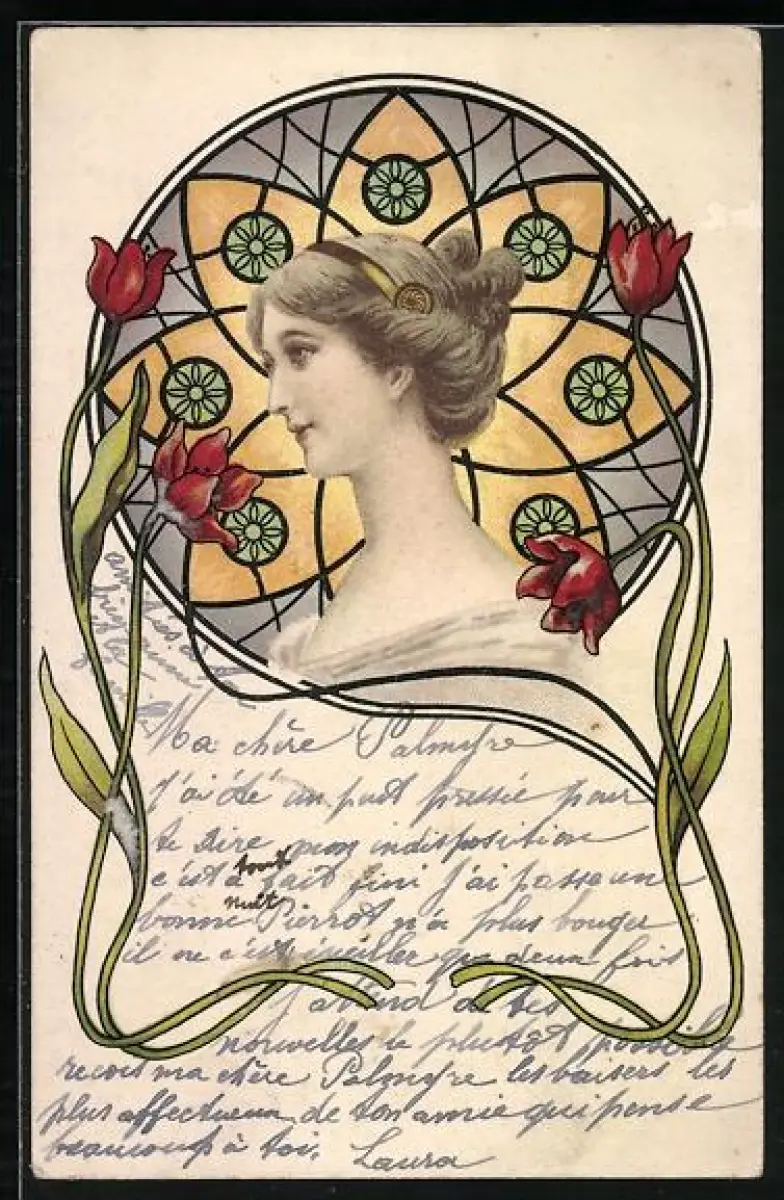 Ma chère Palmyre
j'ai été un peut pressée pour
te dire mon indisposition
c'est a tout fait fini j'ai passe une
bonne nuit Pierrot n'a plus bouger
il ne c'est éveiller que deux fois
J'attend de tes
nouvelles le plustôt possible
recois ma chère Palmyre les baisers les
plus affectueux de ton amie qui pense
beaucoup à toi.
Laura
amitiés à
famille